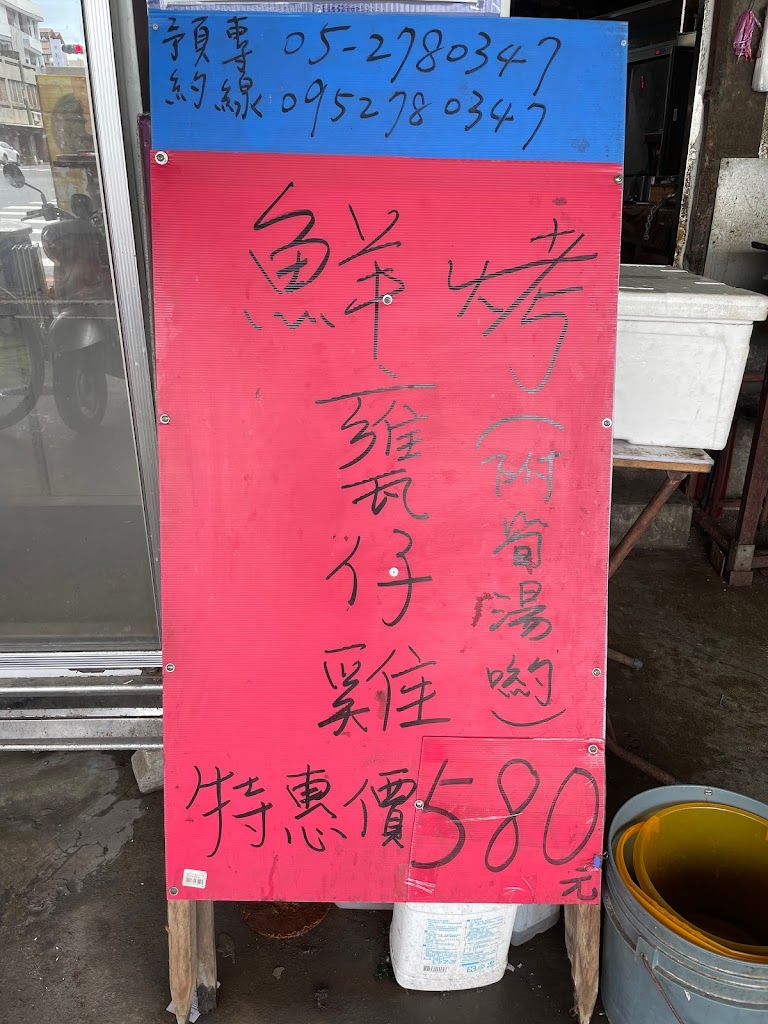 預約專線
05-2780347
0952780347
鮮烤
甕仔雞
(附筍湯喲)
特惠價580元